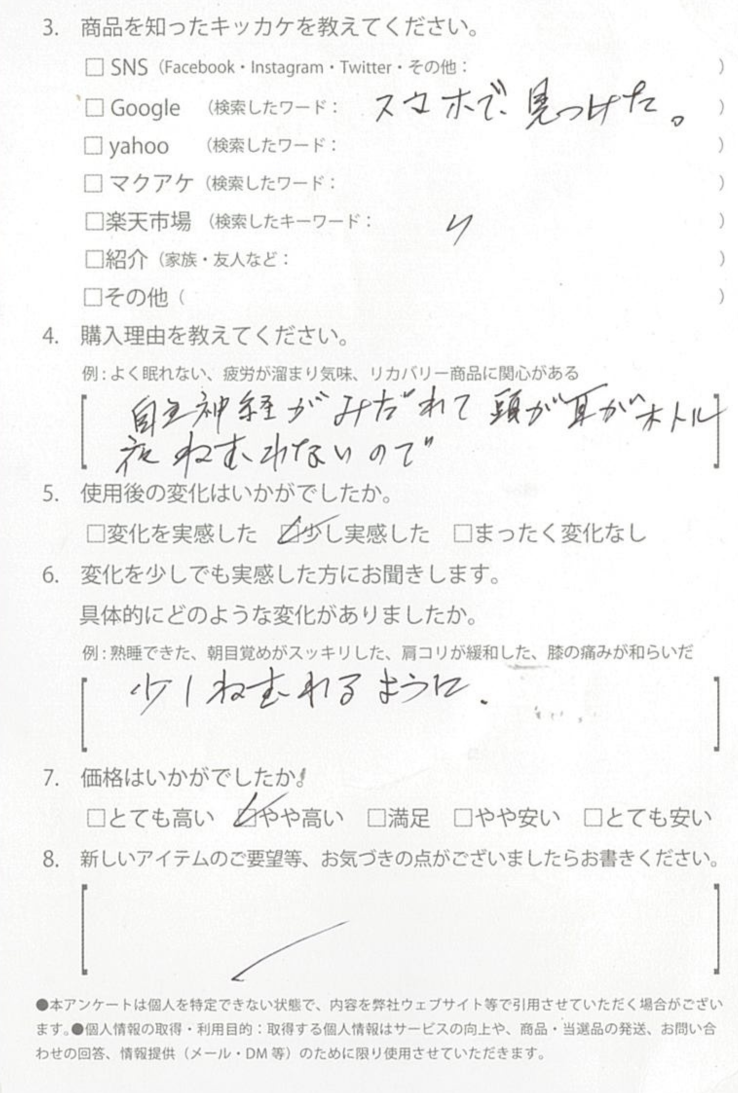 3. 商品を知ったキッカケを教えてください。
□ SNS（Facebook・Instagram・Twitter・その他： ）
□ Google （検索したワード： スマホで見つけた。 ）
□ yahoo （検索したワード： ）
□ マクアケ（検索したワード： ）
□楽天市場 （検索したキーワード： 〃 ）
□紹介（家族・友人など： ）
□その他（ ）
4. 購入理由を教えてください。
例 : よく眠れない、疲労が溜まり気味、リカバリー商品に関心がある
自立神経がみだれて 頭が耳がホトル
夜ねむれないので
5. 使用後の変化はいかがでしたか。
□変化を実感した ☑少し実感した □まったく変化なし
6. 変化を少しでも実感した方にお聞きします。
具体的にどのような変化がありましたか。
例 : 熟睡できた、朝目覚めがスッキリした、肩コリが緩和した、膝の痛みが和らいだ
少しねむれるように.
7. 価格はいかがでしたか。
□とても高い ☑やや高い □満足 □やや安い □とても安い
8. 新しいアイテムのご要望等、お気づきの点がございましたらお書きください。
●本アンケートは個人を特定できない状態で、内容を弊社ウェブサイト等で引用させていただく場合がござい
ます。●個人情報の取得・利用目的：取得する個人情報はサービスの向上や、商品・当選品の発送、お問い合
わせの回答、情報提供（メール・DM 等）のために限り使用させていただきます。